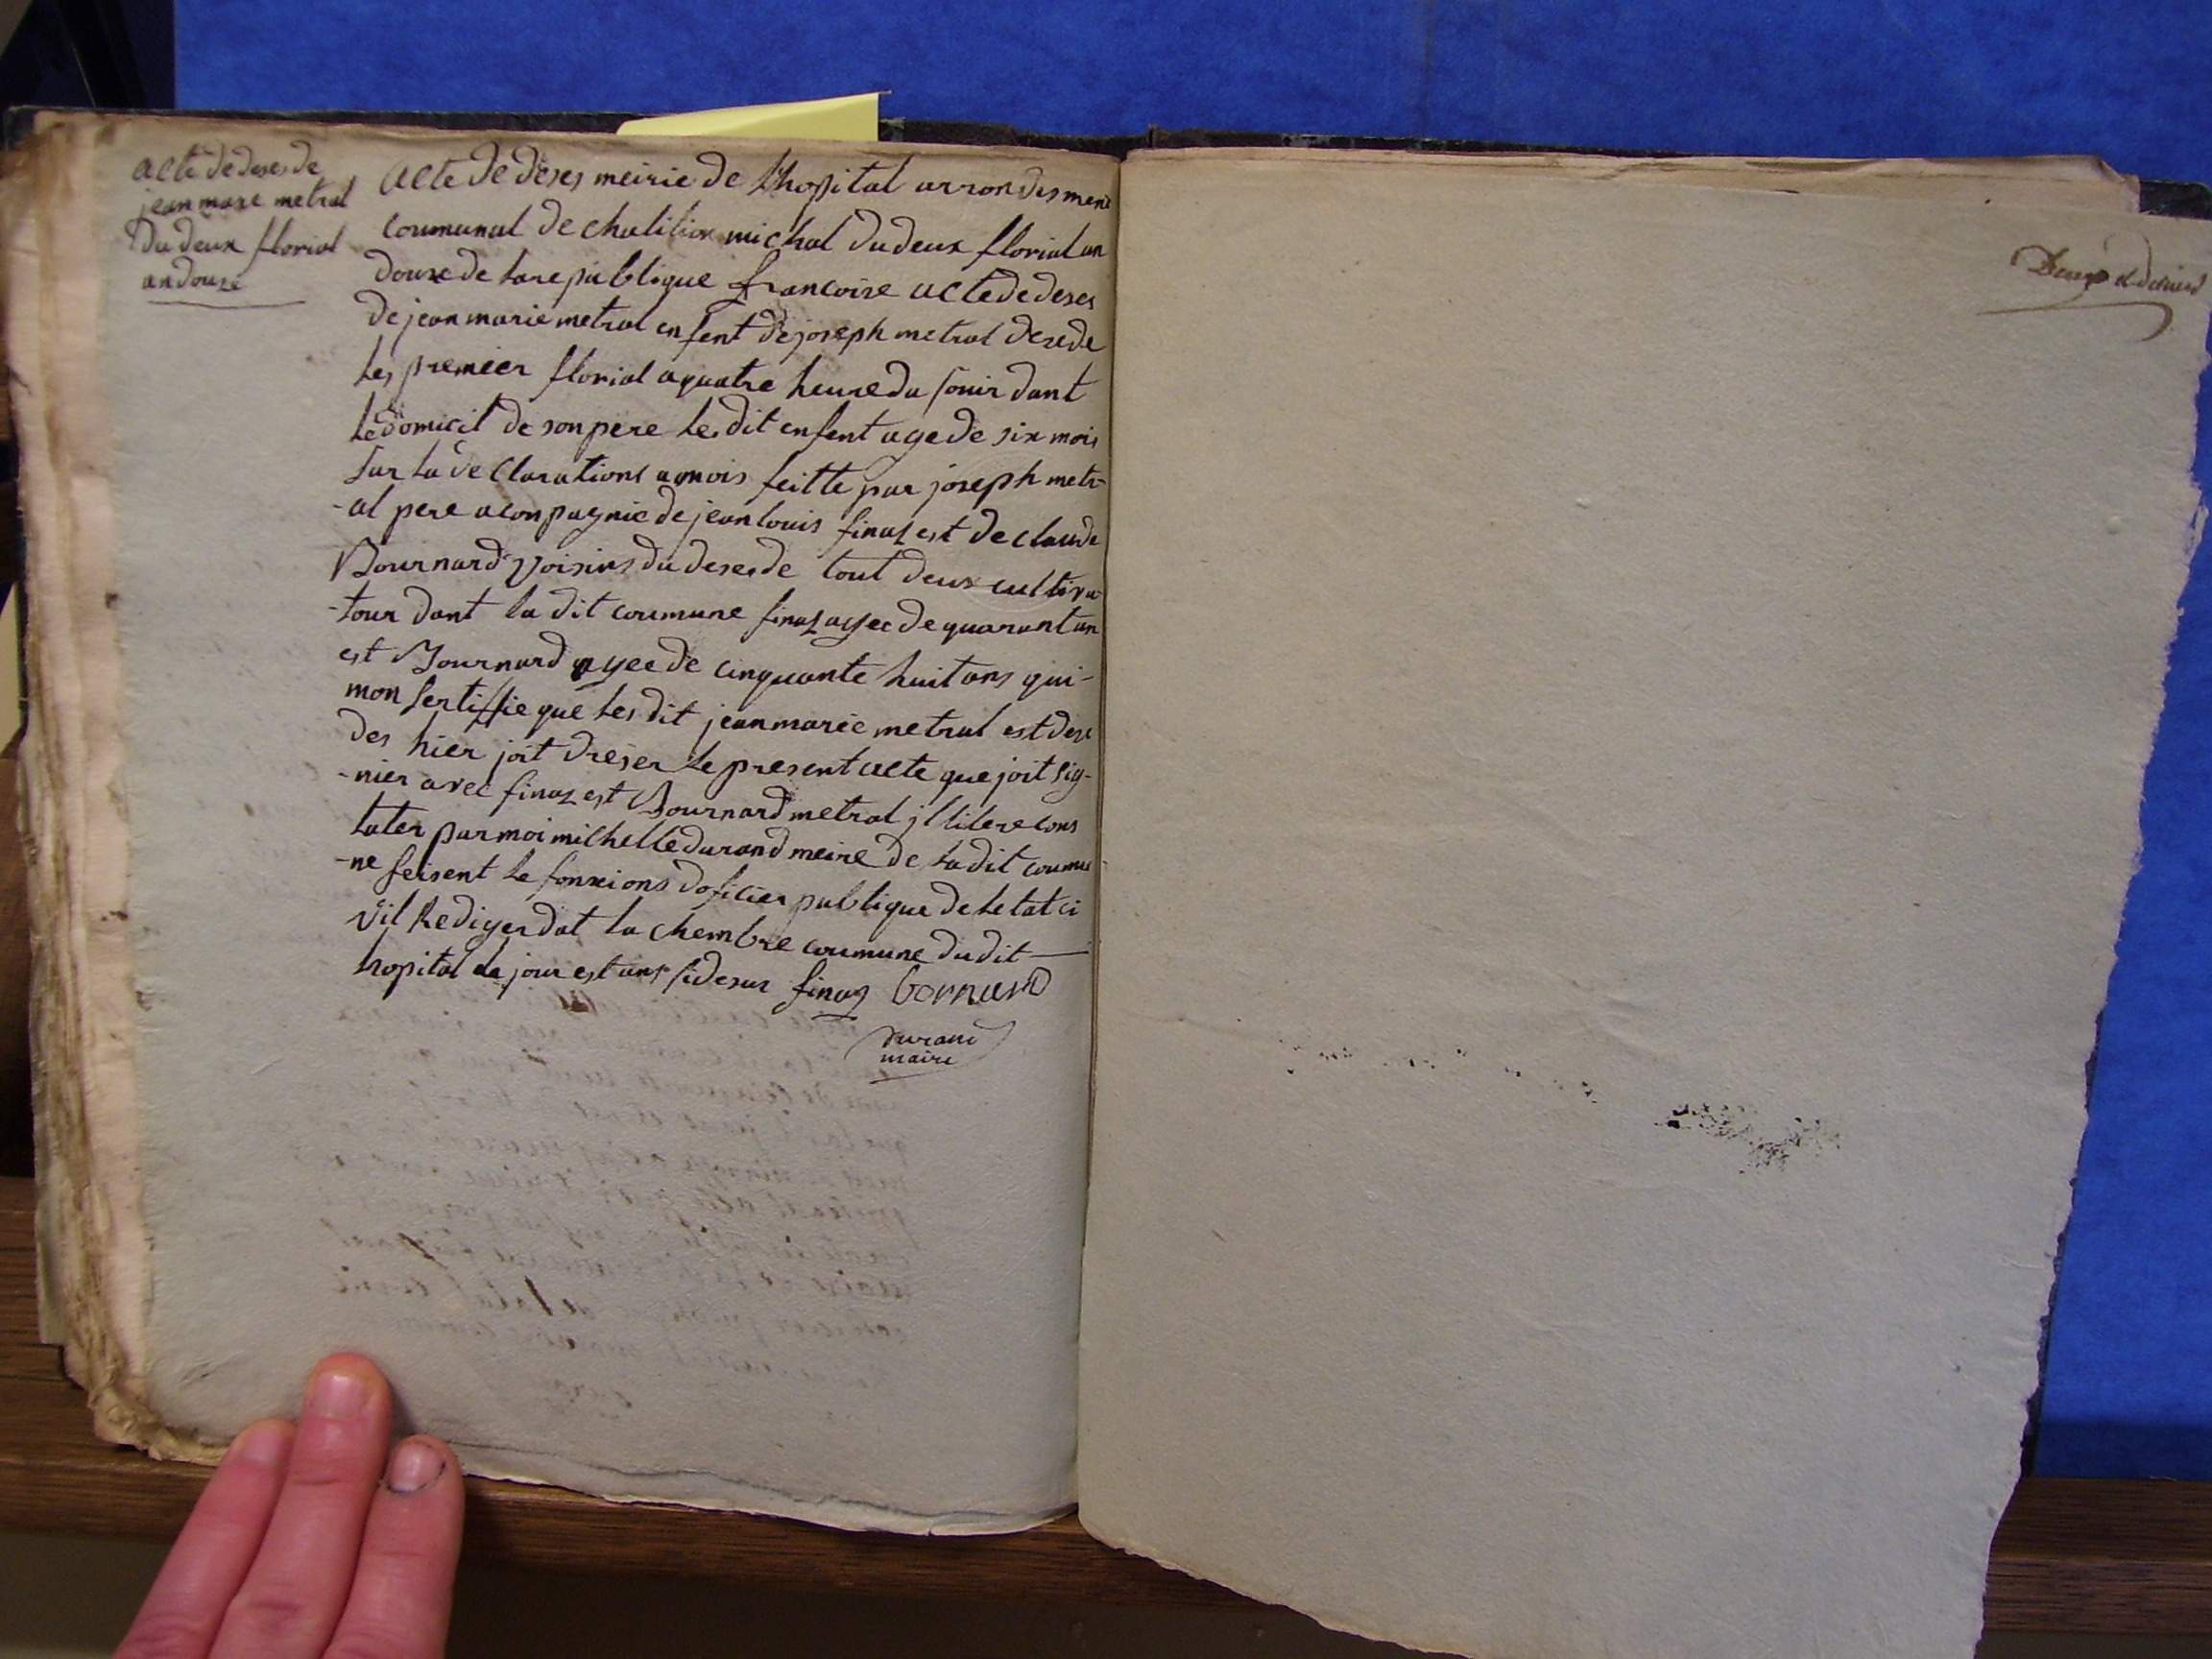 acte de deses de
jean marie metral
Du deux florial
an douse
acte de deses meirie de Lhopital arrondisment
coumunal de chatilion michal du deux florial an
douze de la republique francoise acte de deses
de jean marie metral enfent de joseph metral desede
les premier florial a quatre heure du souir dant
le domicil de son pere les dit enfent age de six mois
sur la declarations a mois feitte par joseph metr-
-al pere aconpagnie de jean louis finaz est de claude
Bournard voisins du desede tout deux cultiva
-tour dant la dit coumune finaz agee de quarant an
est Bournard agee de cinquante huit ans qui-
mon sertiffie que les dit jean marie metral est dese
des hier joit dreser le present acte que joit sig-
-nier avec finaz est Bournard metral il litere cons
tater par moi michelle durand meire de la dit coumu-
-ne feisent le fonxions doficier publique de letat ci
vil Rediger dat la chembre coumune du dit
hopital le jour est ans sidesus finaz bornard
durand
maire